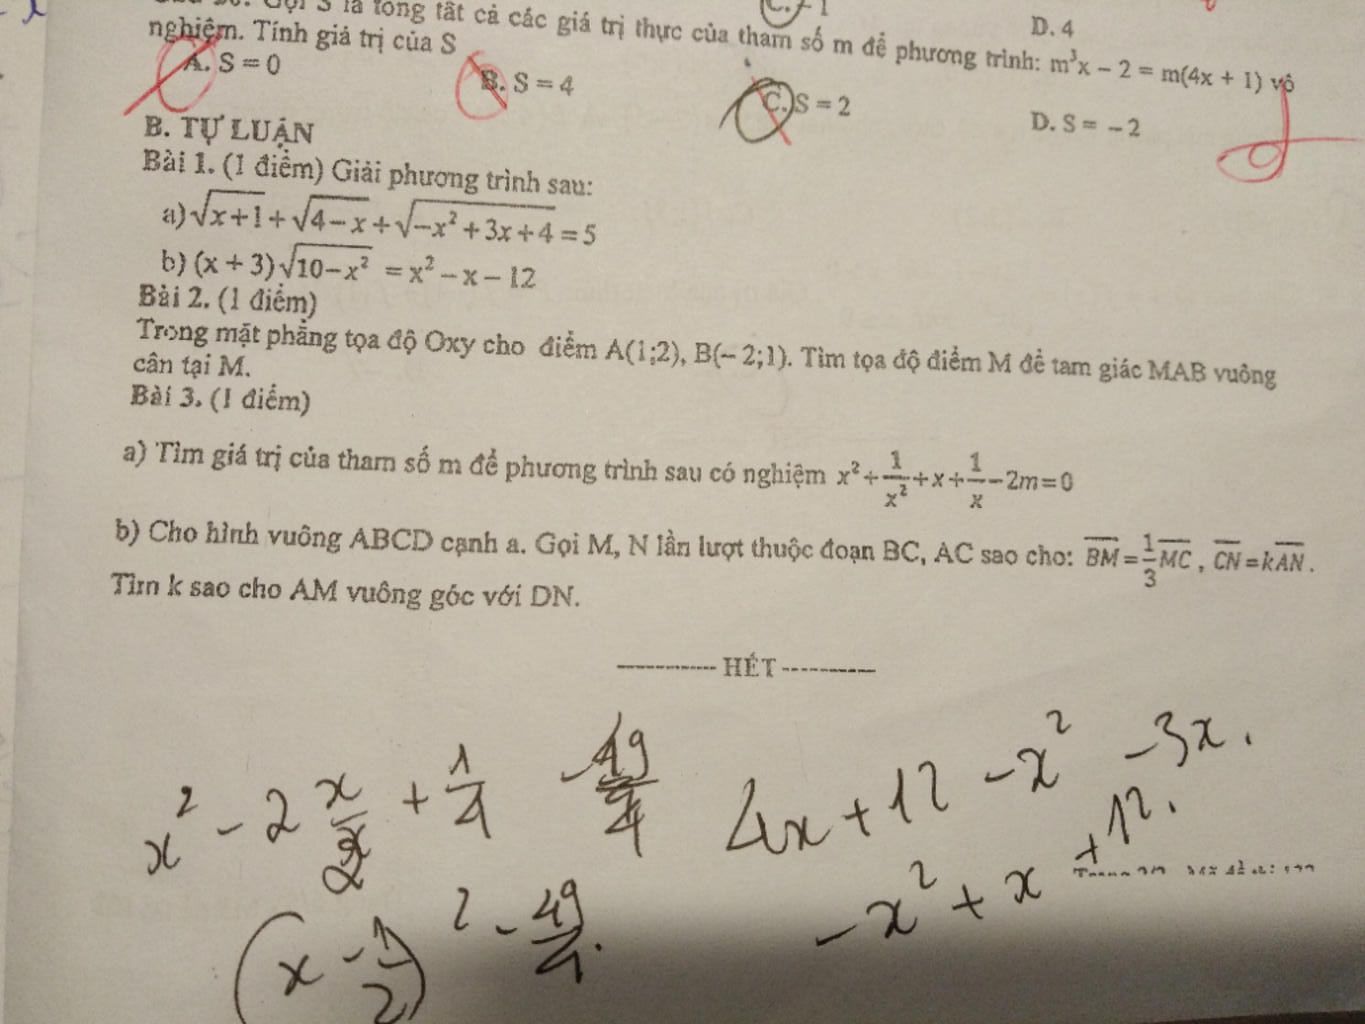 Gọi S là tổng tất cả các giá trị thực của tham số m để phương trình: m³x − 2 = m(4x + 1) vô
nghiệm. Tính giá trị của S
D. 4
A. S = 0
B. S = 4
C. S = 2
D. S = −2
B. TỰ LUẬN
Bài 1. (1 điểm) Giải phương trình sau:
a) √(x+1) + √(4−x) + √(−x²+3x+4) = 5
b) (x + 3)√(10−x²) = x² − x − 12
Bài 2. (1 điểm)
Trong mặt phẳng tọa độ Oxy cho điểm A(1;2), B(−2;1). Tìm tọa độ điểm M để tam giác MAB vuông
cân tại M.
Bài 3. (1 điểm)
a) Tìm giá trị của tham số m để phương trình sau có nghiệm x² + 1/x² + x + 1/x − 2m = 0
b) Cho hình vuông ABCD cạnh a. Gọi M, N lần lượt thuộc đoạn BC, AC sao cho: BM = 1/3 MC, CN = kAN.
Tìm k sao cho AM vuông góc với DN.
------------ HẾT ----------
x² − 2 x/2 + 1/4 − 49/4
4x + 12 − x² − 3x.
− x² + x + 12.
(x − 1/2)² − 49/4.